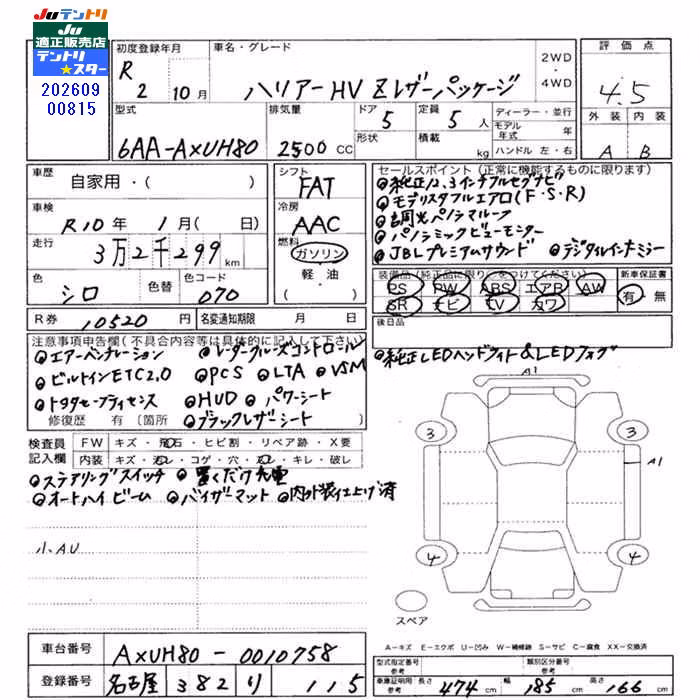 Juテントリ
Ju
適正販売店
テントリ
★スター
202609
00815
初度登録年月
R
2 10月
車名・グレード
ハリアーHV Zレザーパッケージ
2WD
・
4WD
評価点
4.5
外装 内装
A B
型式
6AA-AXUH80
排気量
2500cc
ドア 5
形状
定員 5人
積載 kg
ディーラー・並行
モデル年式 年
ハンドル 左・右
車歴
自家用・( )
車検
R10年 1月( 日)
走行
3万2千299km
色
シロ
色替
色コード
070
シフト
FAT
冷房
AAC
燃料
ガソリン
軽油
( )
R券 10520円
名変通知期限 月 日
セールスポイント(正常に機能するものに限ります)
●純正12.3インチフルセグナビ
●モデリスタフルエアロ(F・S・R)
●調光パノラマルーフ
●パノラミックビューモニター
●JBLプレミアムサウンド ●デジタルインナーミラー
装備品(純正品に限り○をつけてください)
PS PW ABS エアB AW
SR ナビ TV カワ
新車保証書
有・無
後日品
注意事項申告欄(不具合内容等は具体的に記入して下さい)
●エアーベンチレーション ●レーダークルーズコントロール
●ビルトインETC2.0 ●PCS ●LTA ●VSM
●トヨタセーフティセンス ●HUD ●パワーシート
修復歴 有〔箇所 ●ブラックレザーシート
●純正LEDヘッドライト&LEDフォグ
検査員記入欄
FW キズ・飛石・ヒビ割・リペア跡・X要
内装 キズ・汚レ・コゲ・穴・スレ・破レ
●ステアリングスイッチ ●置くだけ充電
●オートハイビーム ●バイザーマット ●内外装仕上げ済
小.AU
A1
3 3
A1
4 4
スペア
A－キズ E－エクボ U－凹み W－補修跡 S－サビ C－腐食 XX－交換済
車台番号 AXUH80-0010758
登録番号 名古屋 382 り 115
型式指定番号
参考
類別区分番号
参考
車庫証明用
参考
長さ 474cm 幅 185cm 高さ 166cm